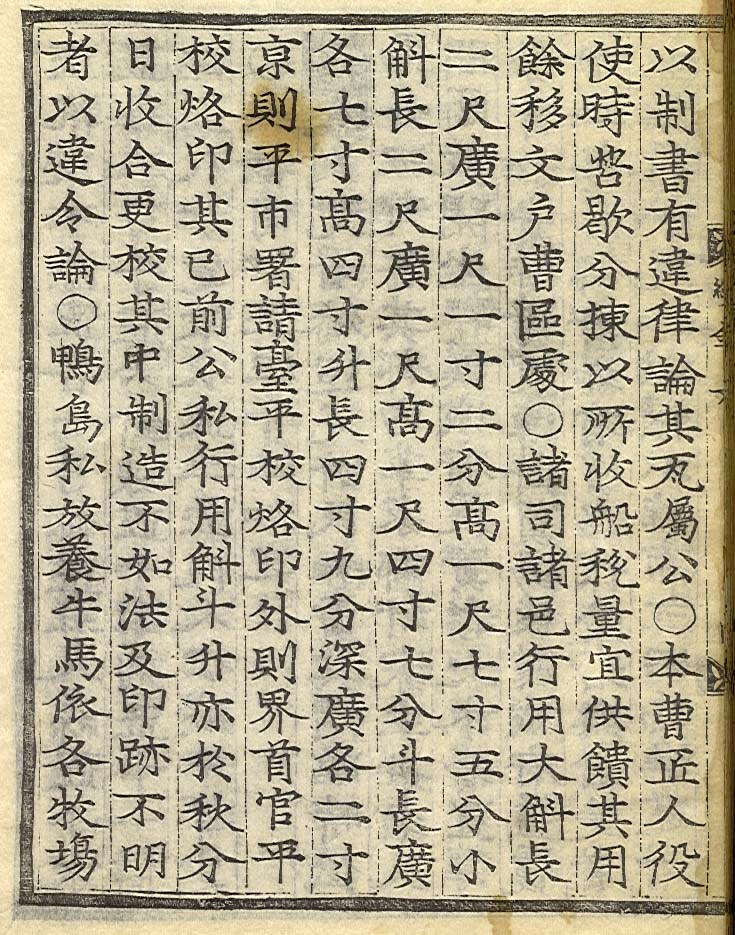 以制書有違律論其瓦屬公○本曹匠人役
使時許歇分揀以所收船稅量宜供饋其用
餘移文戶曹區處○諸司諸邑行用大斛長
二尺廣一尺一寸二分高一尺七寸五分小
斛長二尺廣一尺高一尺四寸七分斗長廣
各七寸高四寸升長四寸九分深廣各二寸
京則平市署請臺平校烙印外則界首官平
校烙印其已前公私行用斛斗升亦於秋分
日收合更校其中制造不如法及印跡不明
者以違令論○鴨島私放養牛馬依各牧場